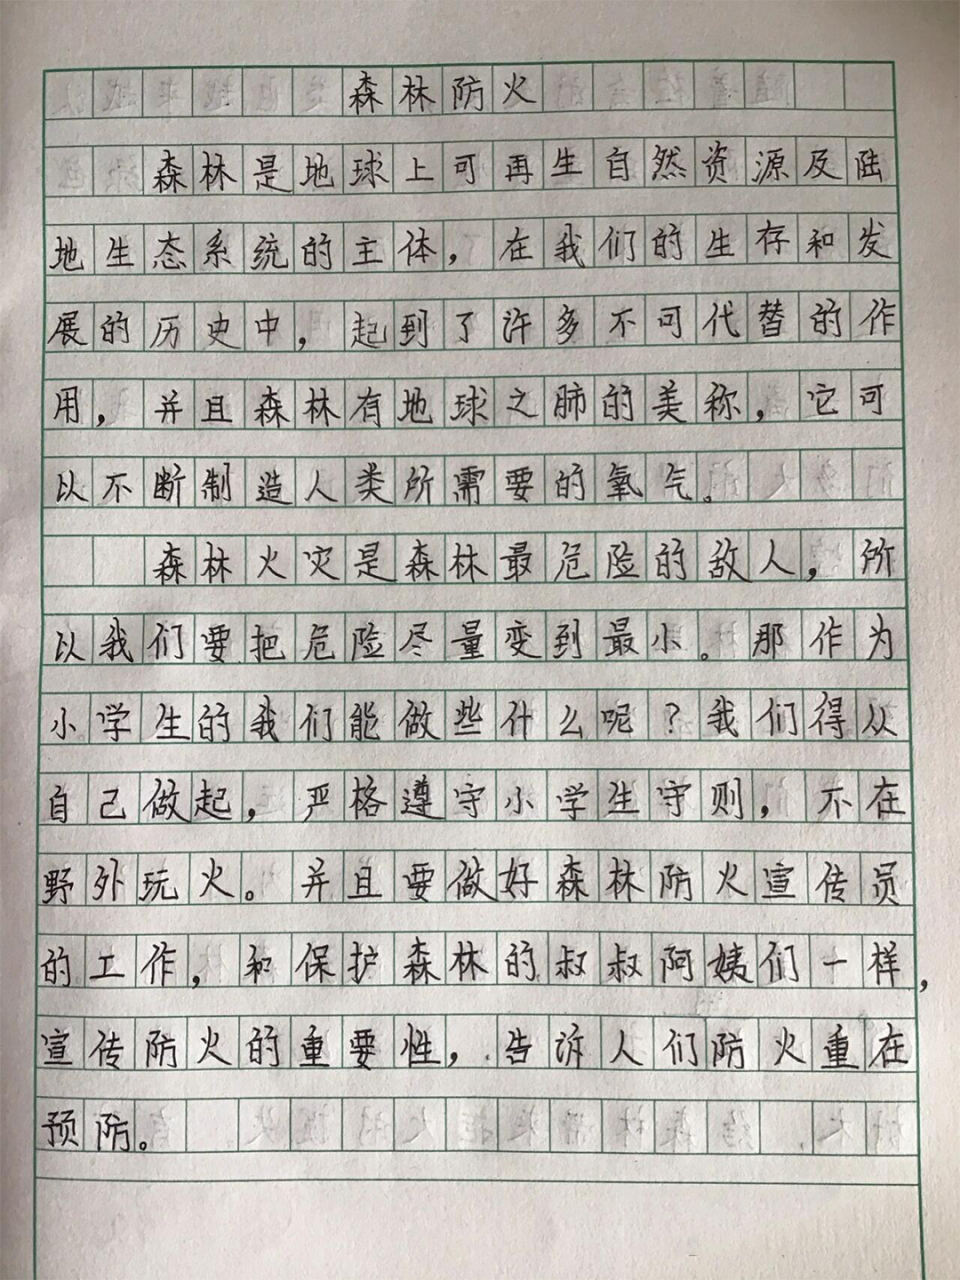 森林防火
森林是地球上可再生自然资源及陆
地生态系统的主体，在我们的生存和发
展的历史中，起到了许多不可代替的作
用，并且森林有地球之肺的美称，它可
以不断制造人类所需要的氧气。
森林火灾是森林最危险的敌人，所
以我们要把危险尽量变到最小。那作为
小学生的我们能做些什么呢？我们得从
自己做起，严格遵守小学生守则，不在
野外玩火。并且要做好森林防火宣传员
的工作，和保护森林的叔叔阿姨们一样，
宣传防火的重要性，告诉人们防火重在
预防。